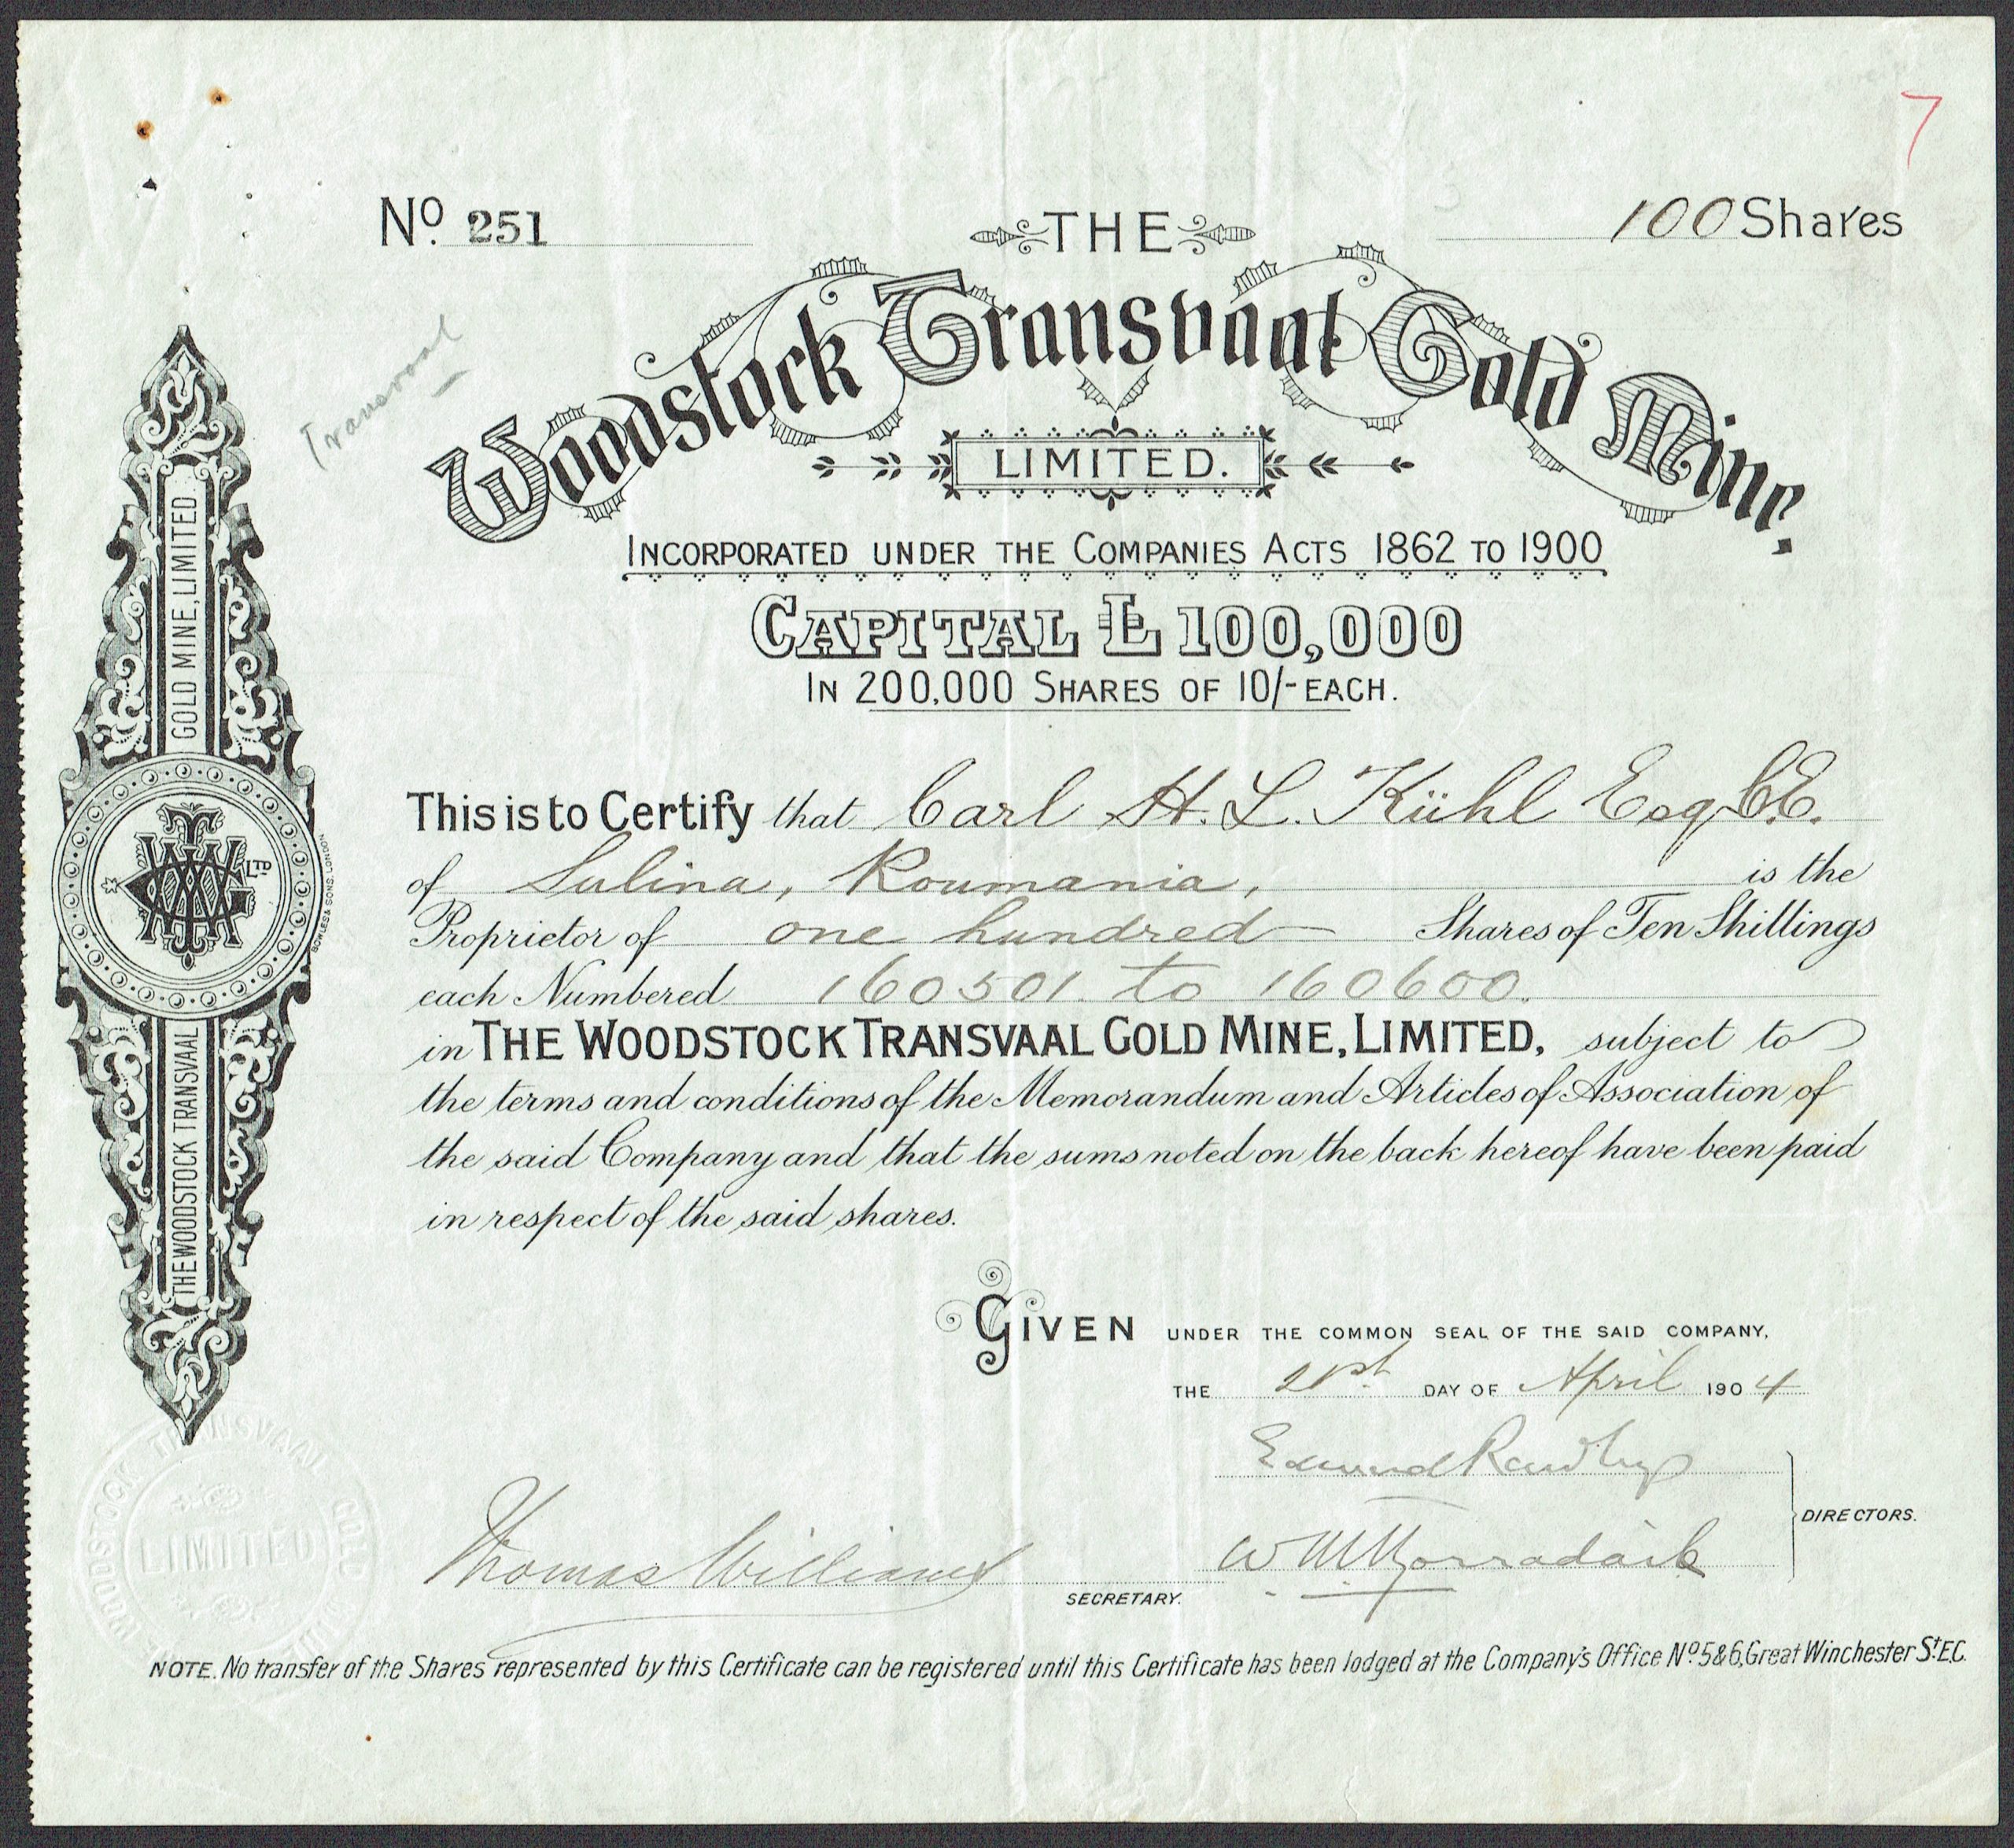 7
No. 251
100 Shares
THE
Woodstock Transvaal Gold Mine,
LIMITED.
Transvaal
INCORPORATED UNDER THE COMPANIES ACTS 1862 TO 1900
CAPITAL £100,000
IN 200,000 SHARES OF 10/- EACH.
This is to Certify that Carl H. L. Kühl Esq C.E.
of Sulina, Roumania, is the
Proprietor of one hundred — Shares of Ten Shillings
each Numbered 160501 to 160600.
in THE WOODSTOCK TRANSVAAL GOLD MINE, LIMITED, subject to
the terms and conditions of the Memorandum and Articles of Association of
the said Company and that the sums noted on the back hereof have been paid
in respect of the said shares.
GIVEN UNDER THE COMMON SEAL OF THE SAID COMPANY,
THE 21st DAY OF April 1904
Edmund
DIRECTORS.
Thomas Williams
SECRETARY.
NOTE. No transfer of the Shares represented by this Certificate can be registered until this Certificate has been lodged at the Company's Office No. 5 & 6, Great Winchester St. E.C.
THE WOODSTOCK TRANSVAAL GOLD MINE, LIMITED
LTD
BOWLES & SONS, LONDON
WOODSTOCK TRANSVAAL GOLD MINE
LIMITED